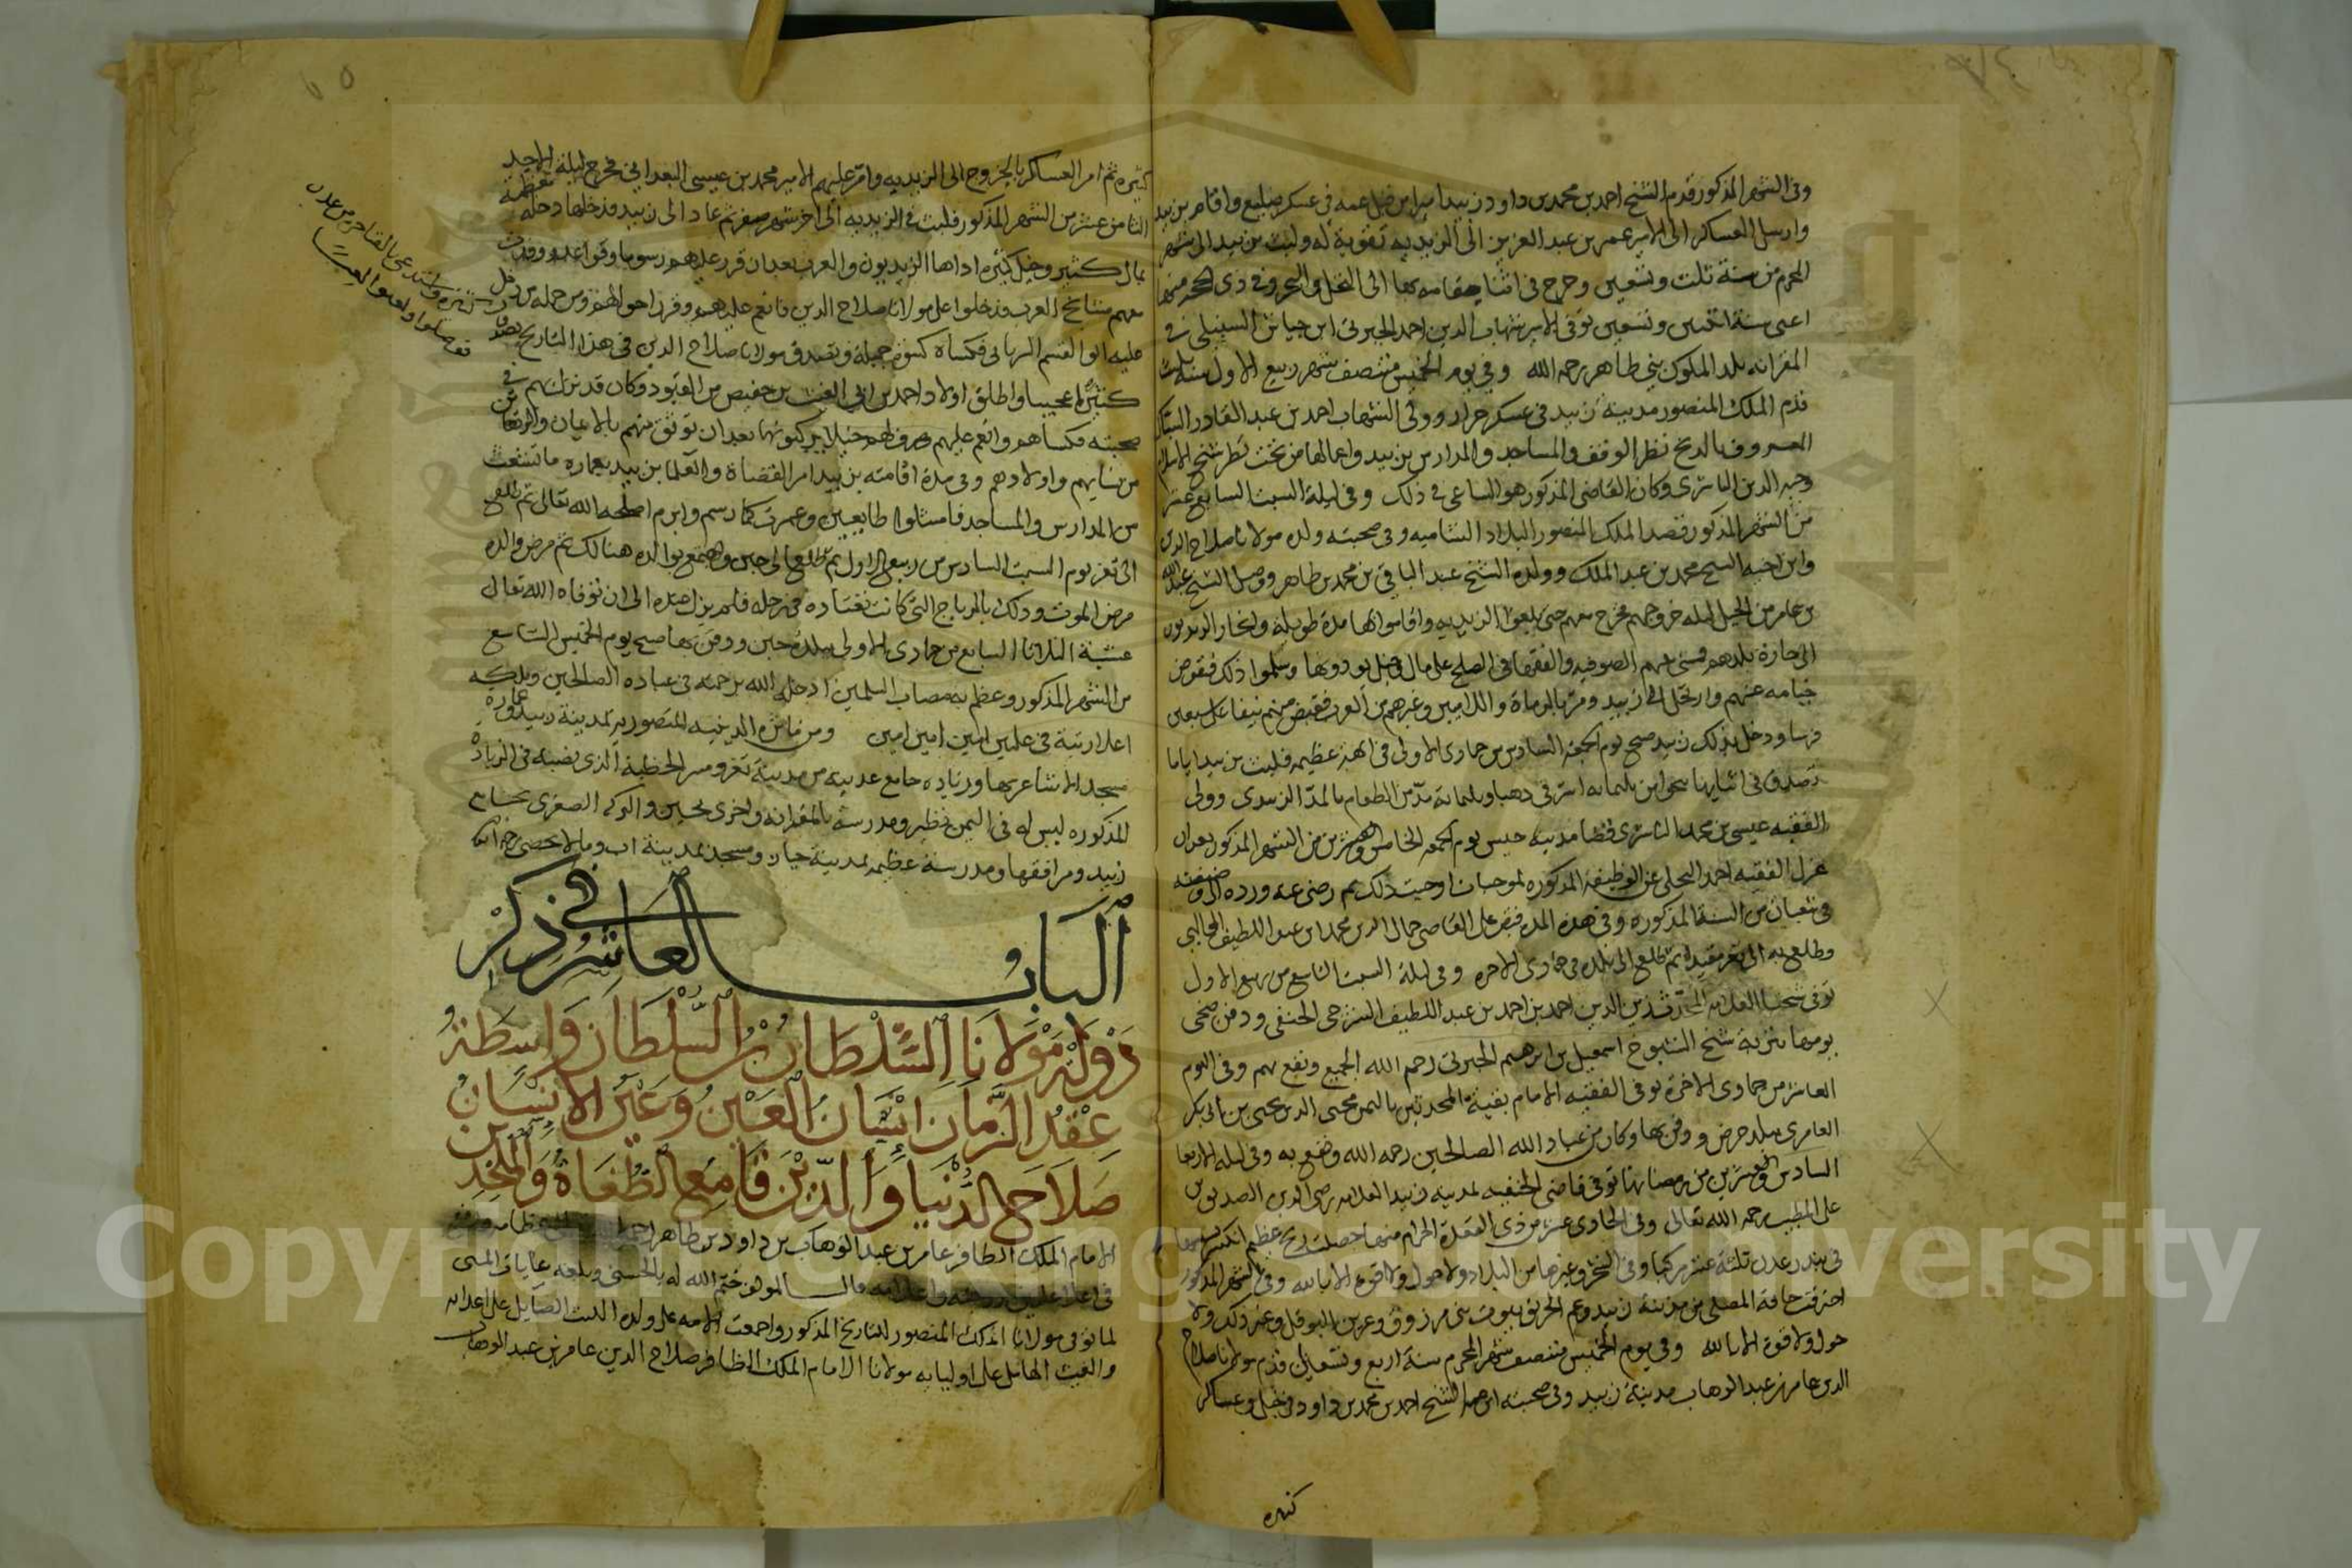 وفى الشهر المذكور قدم الشيخ احمد بن محمد بن داود زبيد اميرا من قبل عمه فى عسكر واقام بزبيد
وارسل العساكر الى الامير عمر بن عبد العزيز الى الزيديه تقوية له ولبث بزبيد الى شهر
المحرم من سنة ثلث وتسعين وخرج فى اثنا مقامه بها الى النخل والبحر وفى ذى الحجه منها
اعنى سنة اثنتين وتسعين توفى الامير شهاب الدين احمد الجبرتى ابن جياش السنبلى فى
المقرانه بلد الملوك بنى طاهر رحمه الله وفى يوم الخميس منتصف شهر ربيع الاول سنة ثلث
قدم الملك المنصور مدينة زبيد فى عسكر جرار وولى الشهاب احمد بن عبد القادر
المعروف بالدبح نظر الوقف والمساجد والمدارس بزبيد واعمالها من تحت نظر شيخ الاسلام
وجيه الدين الناشرى وكان القاضى المذكور هو الساعى فى ذلك وفى ليلة السبت السابع عشر
من الشهر المذكور قصد الملك المنصور البلاد الشاميه وفى صحبته ولده مولانا صلاح الدين
وابن اخيه الشيخ محمد بن عبد الملك وولده الشيخ عبد الباقى بن محمد بن طاهر ووصل الشيخ عبد الله
بن عامر من الجبل ليلة خروجهم فخرج معهم حتى بلغوا الزيديه واقاموا بها مدة طويلة وانحاز الزيديون
الى حازة بلدهم فسعى بينهم الصوفيه والفقها فى الصلح على مال وخيل يودونها وسلموا ذلك فقوض
خيامه عنهم وارتحل الى زبيد ومر بالرماة واللاميين وغيرهم من العرب فقبض منهم نيفا على سبعين
فرسا ودخل بذلك زبيد صبح يوم الجمعه السادس من جمادى الاولى فى ابهة عظيمه فلبث بزبيد اياما
تصدق فى اثنايها بنحو ثلثمايه اشرفى ذهبا وثلثماية مد من الطعام بالمد الزبيدى وولى
الفقيه عيسى بن محمد الناشرى قضا مدينة حيس يوم الجمعه الخامس والعشرين من الشهر المذكور بعد ان
عزل الفقيه احمد البجلى عن الوظيفة المذكوره لموجبات اوجبت ذلك ثم رضى عنه ورده الى وظيفته
فى شعبان من السنة المذكوره وفى هذه المدة قبض على القاضى جمال الدين محمد بن عبد اللطيف الجالبى
وطلع به الى تعز مقيدا ثم طلع الى بلده فى جمادى الاخره وفى ليلة السبت التاسع من ربيع الاول
توفى شيخنا العلامه المحدث زين الدين احمد بن احمد بن عبد اللطيف الشرجى الحنفى ودفن ضحى
يومها بتربة شيخ الشيوخ اسمعيل بن ابرهيم الجبرتى رحم الله الجميع ونفع بهم وفى اليوم
العاشر من جمادى الاخرة توفى الفقيه الامام بقية المحدثين باليمن محيى الدين يحيى بن ابى بكر
العامرى ببلد حرض ودفن بها وكان من عباد الله الصالحين رحمه الله ونفع به وفى ليلة الاربعا
السادس والعشرين من رمضانها توفى قاضى الحنفيه بمدينة زبيد العلامه رضى الدين الصديق بن
على المطيب رحمه الله تعالى وفى الحادى عشر من ذى القعدة الحرام منها حصلت ريح عظيم انكسر بسببها
فى بندر عدن ثلثة عشر مركبا وفى الشحر وغيرها من البلاد ولا حول ولا قوة الا بالله وفى الشهر المذكور
احترقت حافة المصلى من مدينة زبيد وعم الحريق بيوت بنى مرزوق وعرين البوقل وغير ذلك ولا
حول ولا قوة الا بالله وفى يوم الخميس منتصف شهر المحرم سنة اربع وتسعين قدم مولانا صلاح
الدين عامر بن عبد الوهاب مدينة زبيد وفى صحبته ابن عمه الشيخ احمد بن محمد بن داود فى خيل وعساكر
كثيره
كثيره ثم امر العساكر بالخروج الى الزيديه وامر عليهم الامير محمد بن عيسى البعدانى فخرج ليلة الاحد
الثامن عشر من الشهر المذكور فلبث فى الزيديه الى اخر شهر صفر ثم عاد الى زبيد فدخلها دخله عظيمة
بمال كثير وخيل كثيره اداها الزيديون والعرب بعد ان قرر عليهم رسوما وقواعد ووردت
معهم مشايخ العرب فدخلوا على مولانا صلاح الدين فانعم عليهم وقرر احوالهم ومن جملة من دخل
عليه ابو القسم الزبانى فكساه كسوة جميلة وتصدق مولانا صلاح الدين فى هذا التاريخ بصدقات
كثيرة واستدعى بالفناجر من عدن
فوصلوا ولعبوا العبا
كثيرا عجيبا واطلق اولاد احمد بن ابى الغيث بن حفيص من القيود وكان قد نزل بهم فى
صحبته فكساهم وانعم عليهم وصرف لهم خيلا يركبونها بعد ان توثق منهم بالايمان والرهاين
من نسايهم واولادهم وفى مدة اقامته بزبيد امر القضاة والعلما بزبيد بعماره ما تشعث
من المدارس والمساجد فامتثلوا طايعين وعمرت كما رسم وابرم اصلحه الله تعالى ثم طلع
الى تعز يوم السبت السادس من ربيع الاول ثم طلع الى جبن واجتمع بوالده هنالك ثم مرض والده
مرض الموت وذلك بالرياح التى كانت تعتاده فى رجله فلم يزل عنده الى ان توفاه الله تعالى
عشية الثلاثا السابع من جمادى الاولى ببلده جبن ودفن بها صبح يوم الخميس التاسع
من الشهر المذكور وعظم به مصاب المسلمين ادخله الله برحمته فى عباده الصالحين وبلغه
اعلا رتبة فى عليين امين امين امين ومن مآثره الدينيه المنصوريه بمدينة زبيد عمارة
مسجد الاشاعر بها وزياده جامع عدينه من مدينة تعز ومنبر الخطبة الذى نصبه فى الزيادة
المذكوره ليس له فى اليمن نظير ومدرسة بالمقرانه واخرى بجبن والبركه الصغرى بجامع
زبيد ومرافقها ومدرسة عظيمه بمدينة جبان ومسجد بمدينة اب وما لا يحصى رحمه الله
الباب العاشر فى ذكر
دولة مولانا السلطان بن السلطان واسطة
عقد الزمان انسان العين وعين الانسان
صلاح الدنيا والدين قامع الطغاة والملحدين
الامام الملك الظافر عامر بن عبد الوهاب بن داود بن طاهر
فى اعلا عليين قال المولف ختم الله له بالحسنى وبلغه غايات المنى
لما توفى مولانا الملك المنصور للتاريخ المذكور واجمعت الامه على ولده الليث الصايل على اعدايه
والغيث الهامل على اوليايه مولانا الامام الملك الظافر صلاح الدين عامر بن عبد الوهاب
Copyright © King Saud University